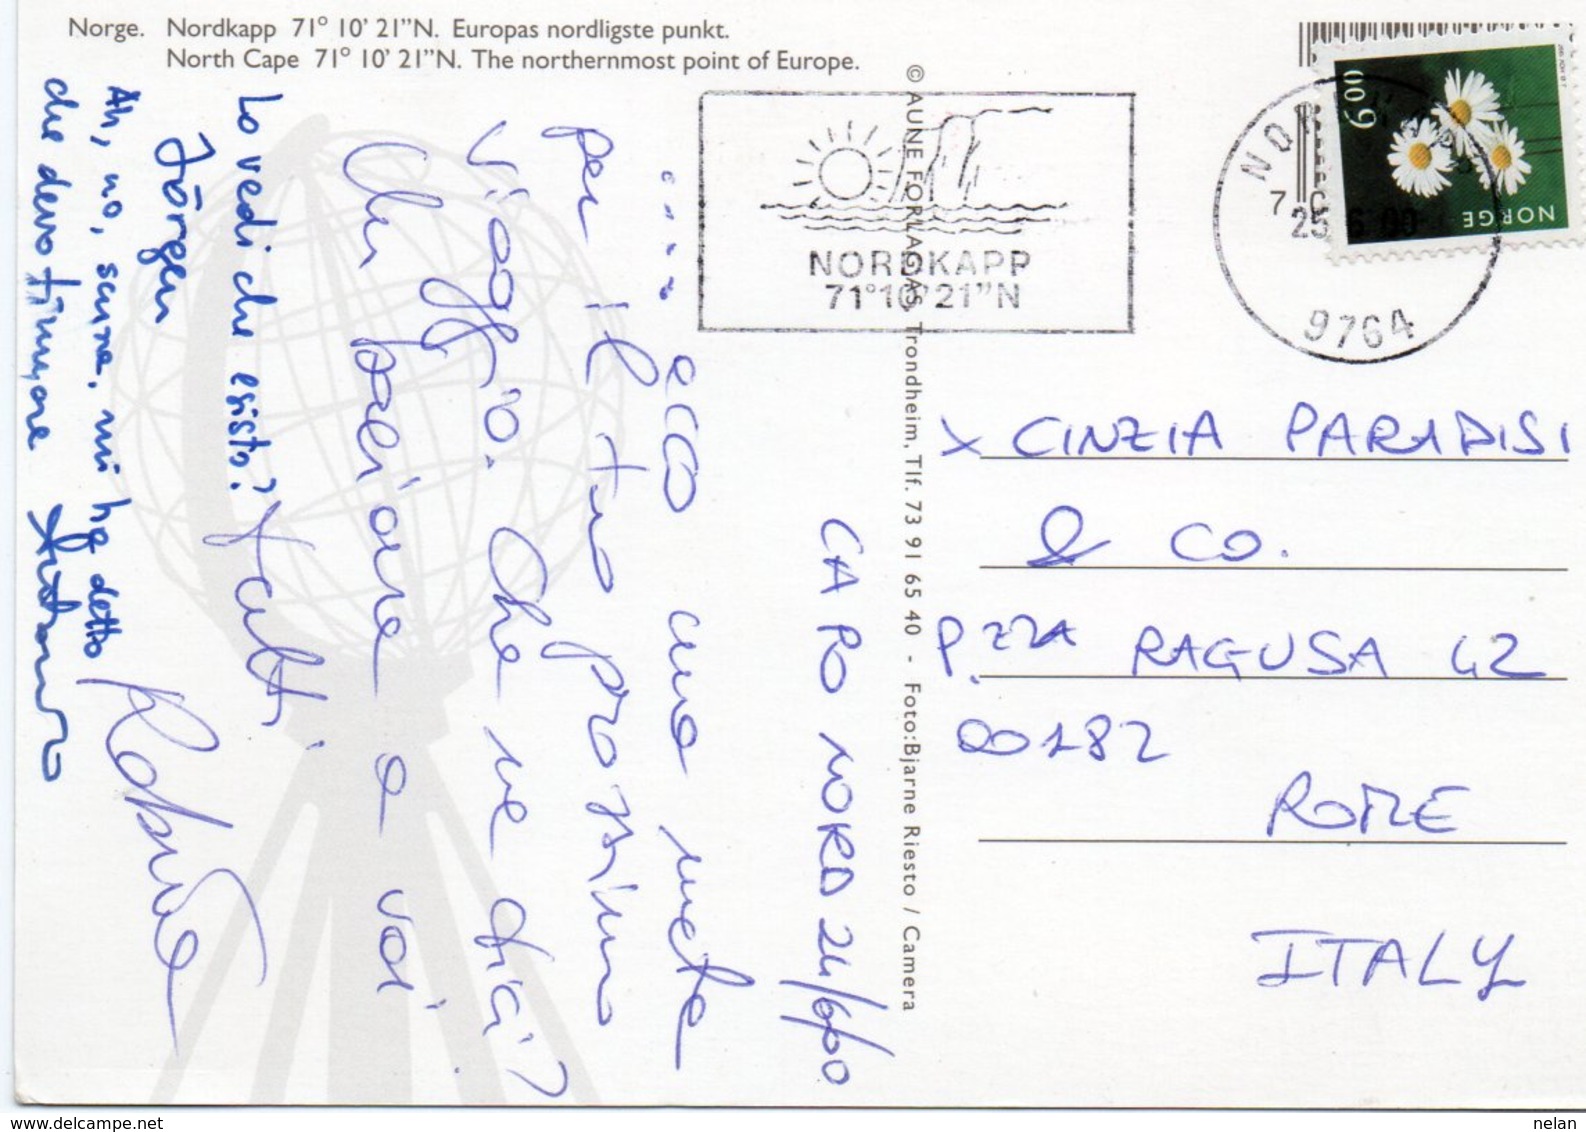 Norge. Nordkapp 71° 10' 21"N. Europas nordligste punkt.
North Cape 71° 10' 21"N. The northernmost point of Europe.
© AUNE FORLAG AS, Trondheim, Tlf. 73 91 65 40 - Foto: Bjarne Riesto / Camera
NORDKAPP
71°10'21"N
NORDKAPP
7
25.6.00
9764
6 00
NORGE
CAPO NORD 24/6/00
.... ecco una meta
per il tuo prossimo
viaggio. Che ne dici?
Un bacione a voi
tutti.
Lo vedi che esisto?
Jörgen
Ah, no, scusa, mi ha detto
che devo firmare
X CINZIA PARADISI
& CO.
P.ZZA RAGUSA 42
00182
ROME
ITALY
www.delcampe.net
nelan